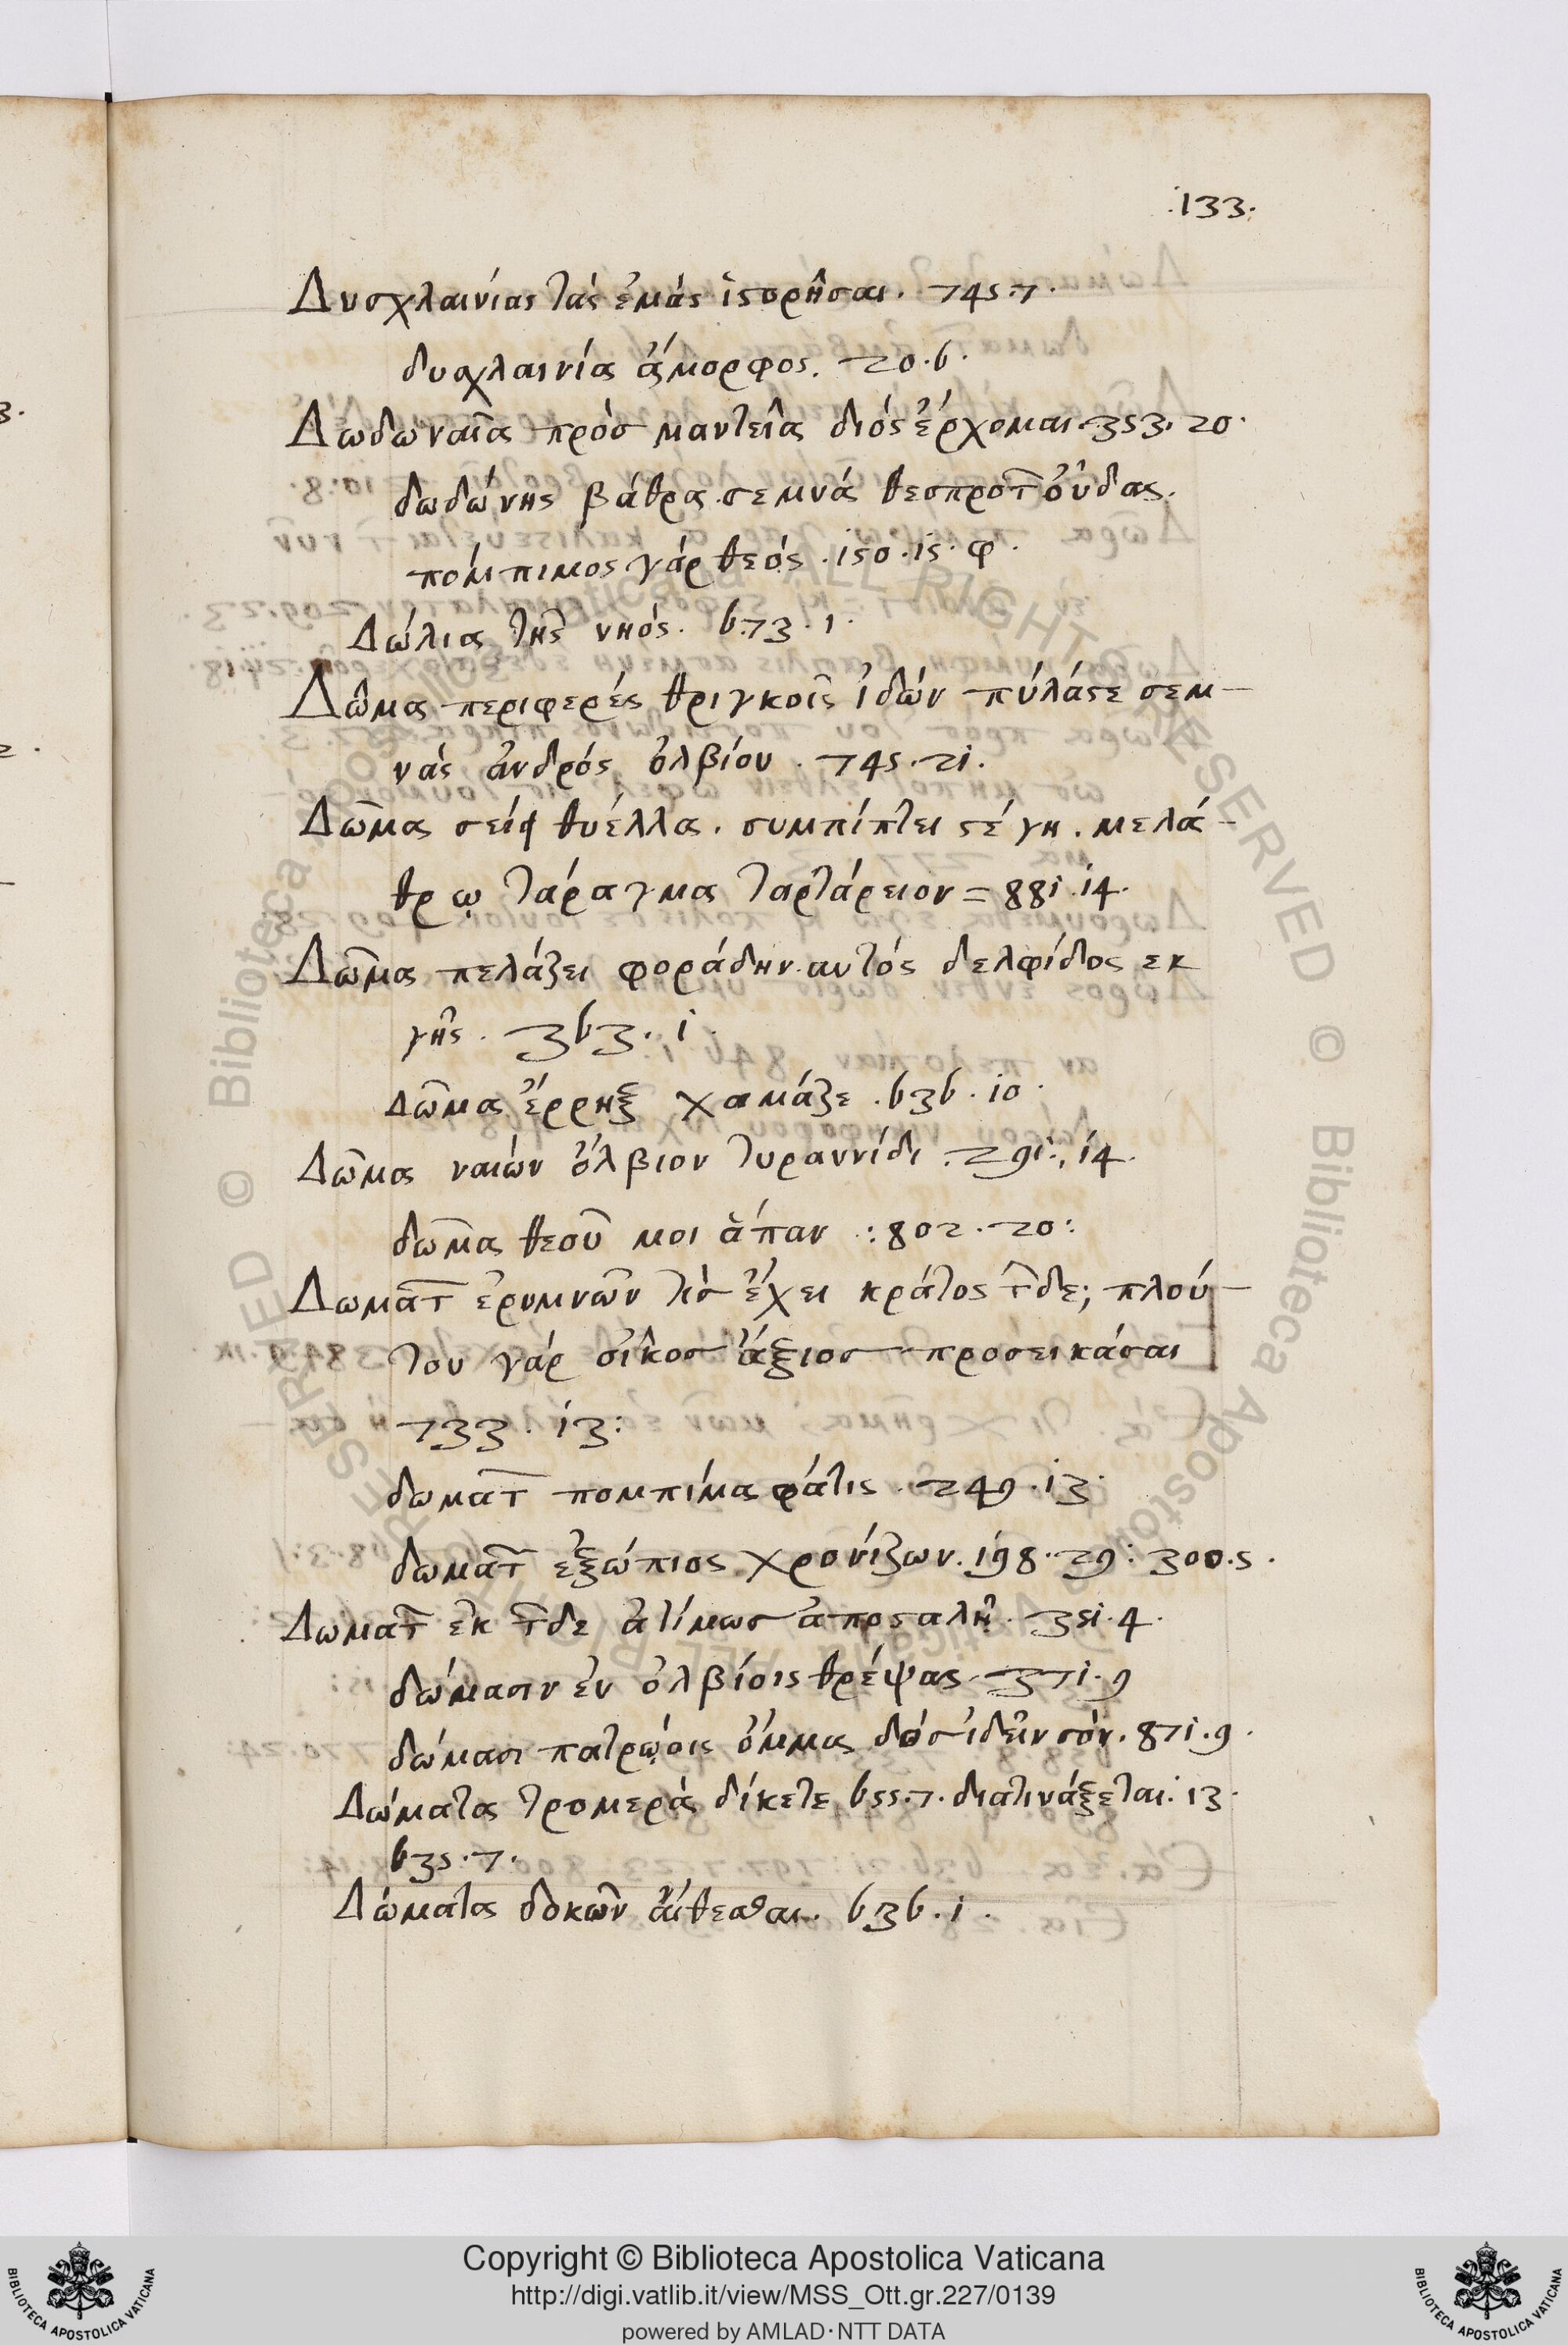 .133.
Δυσχλαινίας τὰς ἐμὰς ἱςορῆσαι. 745.7.
δυσχλαινία ἄμορφος. 20.6.
Δωδωναῖα πρὸσ μαντεῖα διὸς ἔρχομαι. 353.20.
δωδώνης βάθρα σεμνά θεσπροτ̅ οὖδας.
πόμπιμος γάρ θεός. 150.15. φ.
Δώλια τῆς νηός. 673.1.
Δῶμα περιφερές θριγκοῖς ἰδών πύλάςε σεμ-
νάς ἀνδρός ὀλβίου. 745.21.
Δῶμα σείει θυέλλα. συμπίπτει ςέγη. μελά-
θρῳ τάραγμα ταρτάρειον = 881.14.
Δῶμα πελάζει φοράδην. αυτός δελφίδος εκ
γῆς. 363.1.
Δῶμα ἔρρηξ χαμάζε. 636.10.
Δῶμα ναιών ὄλβιον τυραννίδι. 291.14.
δῶμα θεοῦ μοι ἅπαν : 802.20:
Δωματ̅ ἐρυμνῶν τίσ ἔχει κράτος τ̅δε; πλού-
του γάρ οἶκοσ ἄξιοσ προσεικάσαι
733.13:
δωματ̅ πομπίμα φάτις. 249.13.
δωματ̅ ἐξώπιος χρονίζων. 198.29: 300.5.
Δωματ̅ ἐκ τ̅δε ἀτίμωσ ἀποςαλῆ. 351.4.
δώμασιν ἐν ὀλβίοις θρέψας. 371.9
δώμασι πατρῴοις ὄμμα δόσ ἰδεῖν σόν. 871.9.
Δώματα τρομερά δίκετε 655.7. διατινάξεται. 13.
635.7.
Δώματα δοκῶν αἴθεσθαι. 636.1.
3.
2.
Copyright © Biblioteca Apostolica Vaticana
http://digi.vatlib.it/view/MSS_Ott.gr.227/0139
powered by AMLAD·NTT DATA
BIBLIOTECA APOSTOLICA VATICANA
BIBLIOTECA APOSTOLICA VATICANA